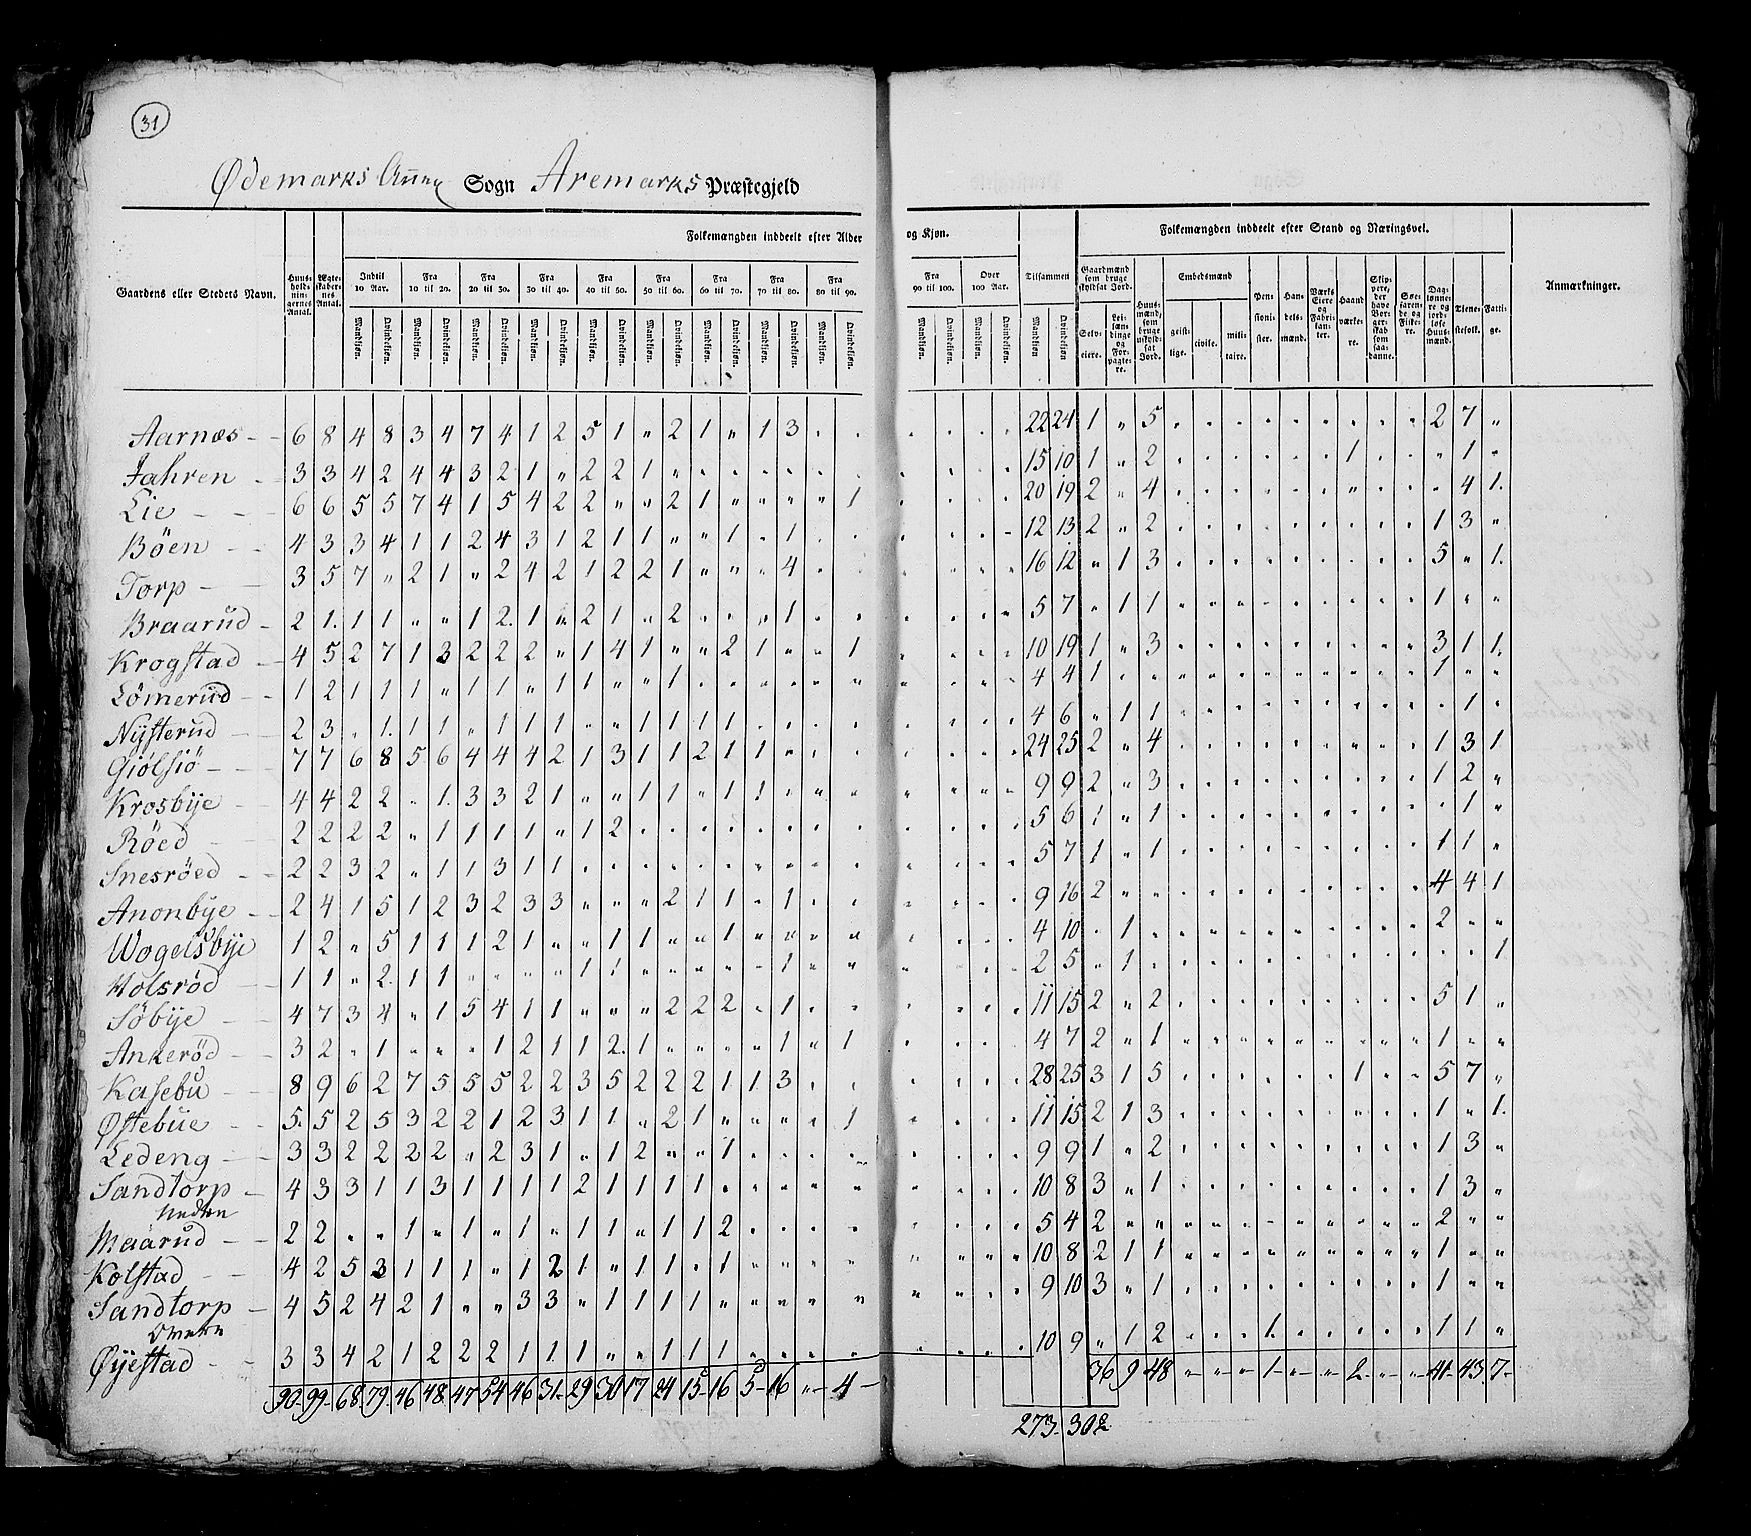 31
Ødemarks Annex Sogn Aremarks Præstegjeld
Folkemængden inddeelt efter Alder og Kjøn. Folkemængden inddeelt efter Stand og Næringsvei.
Gaardens eller Stedets Navn. Huus-holdnin-gernes Antal. Ægte-skaber-nes Antal. Indtil 10 Aar. Fra 10 til 20. Fra 20 til 30. Fra 30 til 40. Fra 40 til 50. Fra 50 til 60. Fra 60 til 70. Fra 70 til 80. Fra 80 til 90. Fra 90 til 100. Over 100 Aar. Tilsammen Gaardmænd som bruge skyldsat Jord. Huus-mænd, som bruge uskyld-sat Jord. Embedsmænd Pen-sioni-ster. Han-dels-mænd. Værks Eiere og Fabri-kan-ter. Haand-værke-re. Skip-pere, der have Bor-ger-skab som saa-danne. Søe-faren-de og Fiske-re. Dag-lønne-re og jord-løse Huus-mænd. Tjene-stefolk. Fatti-ge. Anmærkninger.
Mandkjøn. Qvindekjøn. Mandkjøn. Qvindekjøn. Mandkjøn. Qvindekjøn. Mandkjøn. Qvindekjøn. Mandkjøn. Qvindekjøn. Mandkjøn. Qvindekjøn. Mandkjøn. Qvindekjøn. Mandkjøn. Qvindekjøn. Mandkjøn. Qvindekjøn. Mandkjøn. Qvindekjøn. Mandkjøn. Qvindekjøn. Mandkjøn. Qvindekjøn. Selv-eiere. Lei-læn-dinge og For-pagte-re. geist-lige. civile. mili-taire.
Aarnæs - - 6 8 4 8 3 4 7 4 1 2 5 1 " 2 1 " 1 3 . . . . . . 22 24 1 " 5 . . . . . . . . . 2 7 "
Jahren - 3 3 4 2 4 4 3 2 1 " 2 2 1 " . . . . . . . . . . 15 10 1 " 2 . . . . . . 1 . . " 1 "
Lie - - 6 6 5 5 7 4 1 5 4 2 2 " " 2 1 " " " " 1 . . . . 20 19 2 " 4 . . . . . . " . . . 4 1.
Böen - - 4 3 3 4 1 1 2 4 3 1 2 1 1 " " 1 . 1 . . . . . - 12 13 2 " 2 . . . . . . . . . 1 3 "
Torp - 3 5 7 " 2 1 " 2 4 2 1 2 2 1 " " " 4 . . . . . . 16 12 " 1 3 . . . . . . . . . 5 " 1.
Braarud - 2 1. 1 1 " " 1 2. 1 " 2 1 " 2 " " " 1 . . . . . . 5 7 . 1 1 . . . . . . . . . 1 " "
Krogstad - 4 5 2 7 1 3 2 2 2 " 1 4 1 " " 2 1 " " 1 . . . . 10 19 1 " 3 . . . . . . . . . 3 1 1.
Lömerud - 1 2 1 1 1 " 1 1 " 1 1 " " 1 . . . . . . . . . . 4 4 1 . . . . . . . . . . . 1 " "
Nysterud - 2 3 . 1. 1 1 " 1 1 1 " " 1 1 1 1 . . . . . . . . 4 6 " 1 1 . . . . . . . . . . 1 "
Giölsiö - - 7 7 6 8 5 6 4 4 4 2 1 3 1 1 2 1 1 " . . . . . . 24 25 2 " 4 . . . . . . . . . 1 3 1
Krosbye - 4 4 2 2 " 1. 3 3 2 1 " " 1 1 " 1 1 . . . . . . . 9 9 2 " 3 . . . . . . . . . 1 2 "
Röed - 2 2 2 2 " 1 1 1 1 " 1 2 . . . . . . . . . . . . 5 6 1 " 1 . . . . . . . . . . 1 "
Snesröed - 2 2 3 2 " 1 1 3 1 1 . . . . . . . . . . . . . . 5 7 1 " 1 . . . . . . . . . 1 1 "
Anonbye - 2 4 1 5 1 2 3 2 3 3 " " " 2 1 1 . 1 . . . . . . 9 16 2 " . . . . . . . . . . 4 4 1
Wogelsbye 1 2 " 5 1 1 1 2 1 " " 1 1 " " 1 " " " " . . . . 4 10 . 1 . . . . . . . . . . 2 " "
Holsröd - 1 1 " 2. 1 1 " " " " 1 1 " " " " " 1 " " . . . . 2 5 " 1 . . . . . . . . . . . . 1
Söbye - 4 7 3 4 " 1 5 4 1 1 " " " 2 2 2 . 1 . . . . . . 11 15 2 " 2 . . . . . . . . . 5 1 "
Ankeröd - 3 2 " 1 " " " 1 2 1 1 2. 1 " " " " 1 " 1 . . . . 4 7 2 " 1 . . . . . . . . . 1 " "
Kasebu - 8 9 6 2 7 5 5 5 2 2 3 5 2 2 2 1 1 3 . . . . . . 28 25 3 1 5 . . . . . . 1 . . 5 7 "
Østebüe - 5. 5 2 5 3 2 2 1 2 3 1 1 " 2 1 " " " " 1 . . . . 11 15 2 1 3 . . . . . . . . . 1 " 1.
Ledeng - 3 3 2 2 2 2 " 2 3 1 " 1 2 " " 1 . . . . . . . . 9 9 1 " 2 . . . . . . . . . 1 3 "
Sandtorp - 4 3 3 1 1 3 1 1 1 1 2 1 1 1 1 . . . . . . . . . 10 8 3 " 1 . . . . . . . . . 1 3 "
Nedre
Maarud - 2 2 " " 1 " 1 " 1 " 1 1 " 1 1 2 . . . . . . . . 5 4 2 " " . . . . . . . . . 2 " "
Kolstad - 4 2 5 3 1 1 1 " 1 2 1 " 1 1 " 1 . . . . . . . . 10 8 2 1 1 . . . . . . . . . 1 " "
Sandtorp - 4 5 2 4 2 1 " " 3 3 " 1 1 1 1 " " " " " . . . . 9 10 3 " 1 . . . . . . . . . 1 " "
Øvre
Øyestad - 3 3 4 2 1 2 2 2 1 1 1 " " 1 1 1 . . . . . . . . 10 9 " 1 2 . . . 1. . . . . . 1 1 "
90. 99. 68. 79. 46 48 47 54 46 31. 29 30 17 24 15 16 5 16 " 4 36 9 48 " " " 1. " " 2 " " 41. 43. 7
273. 302